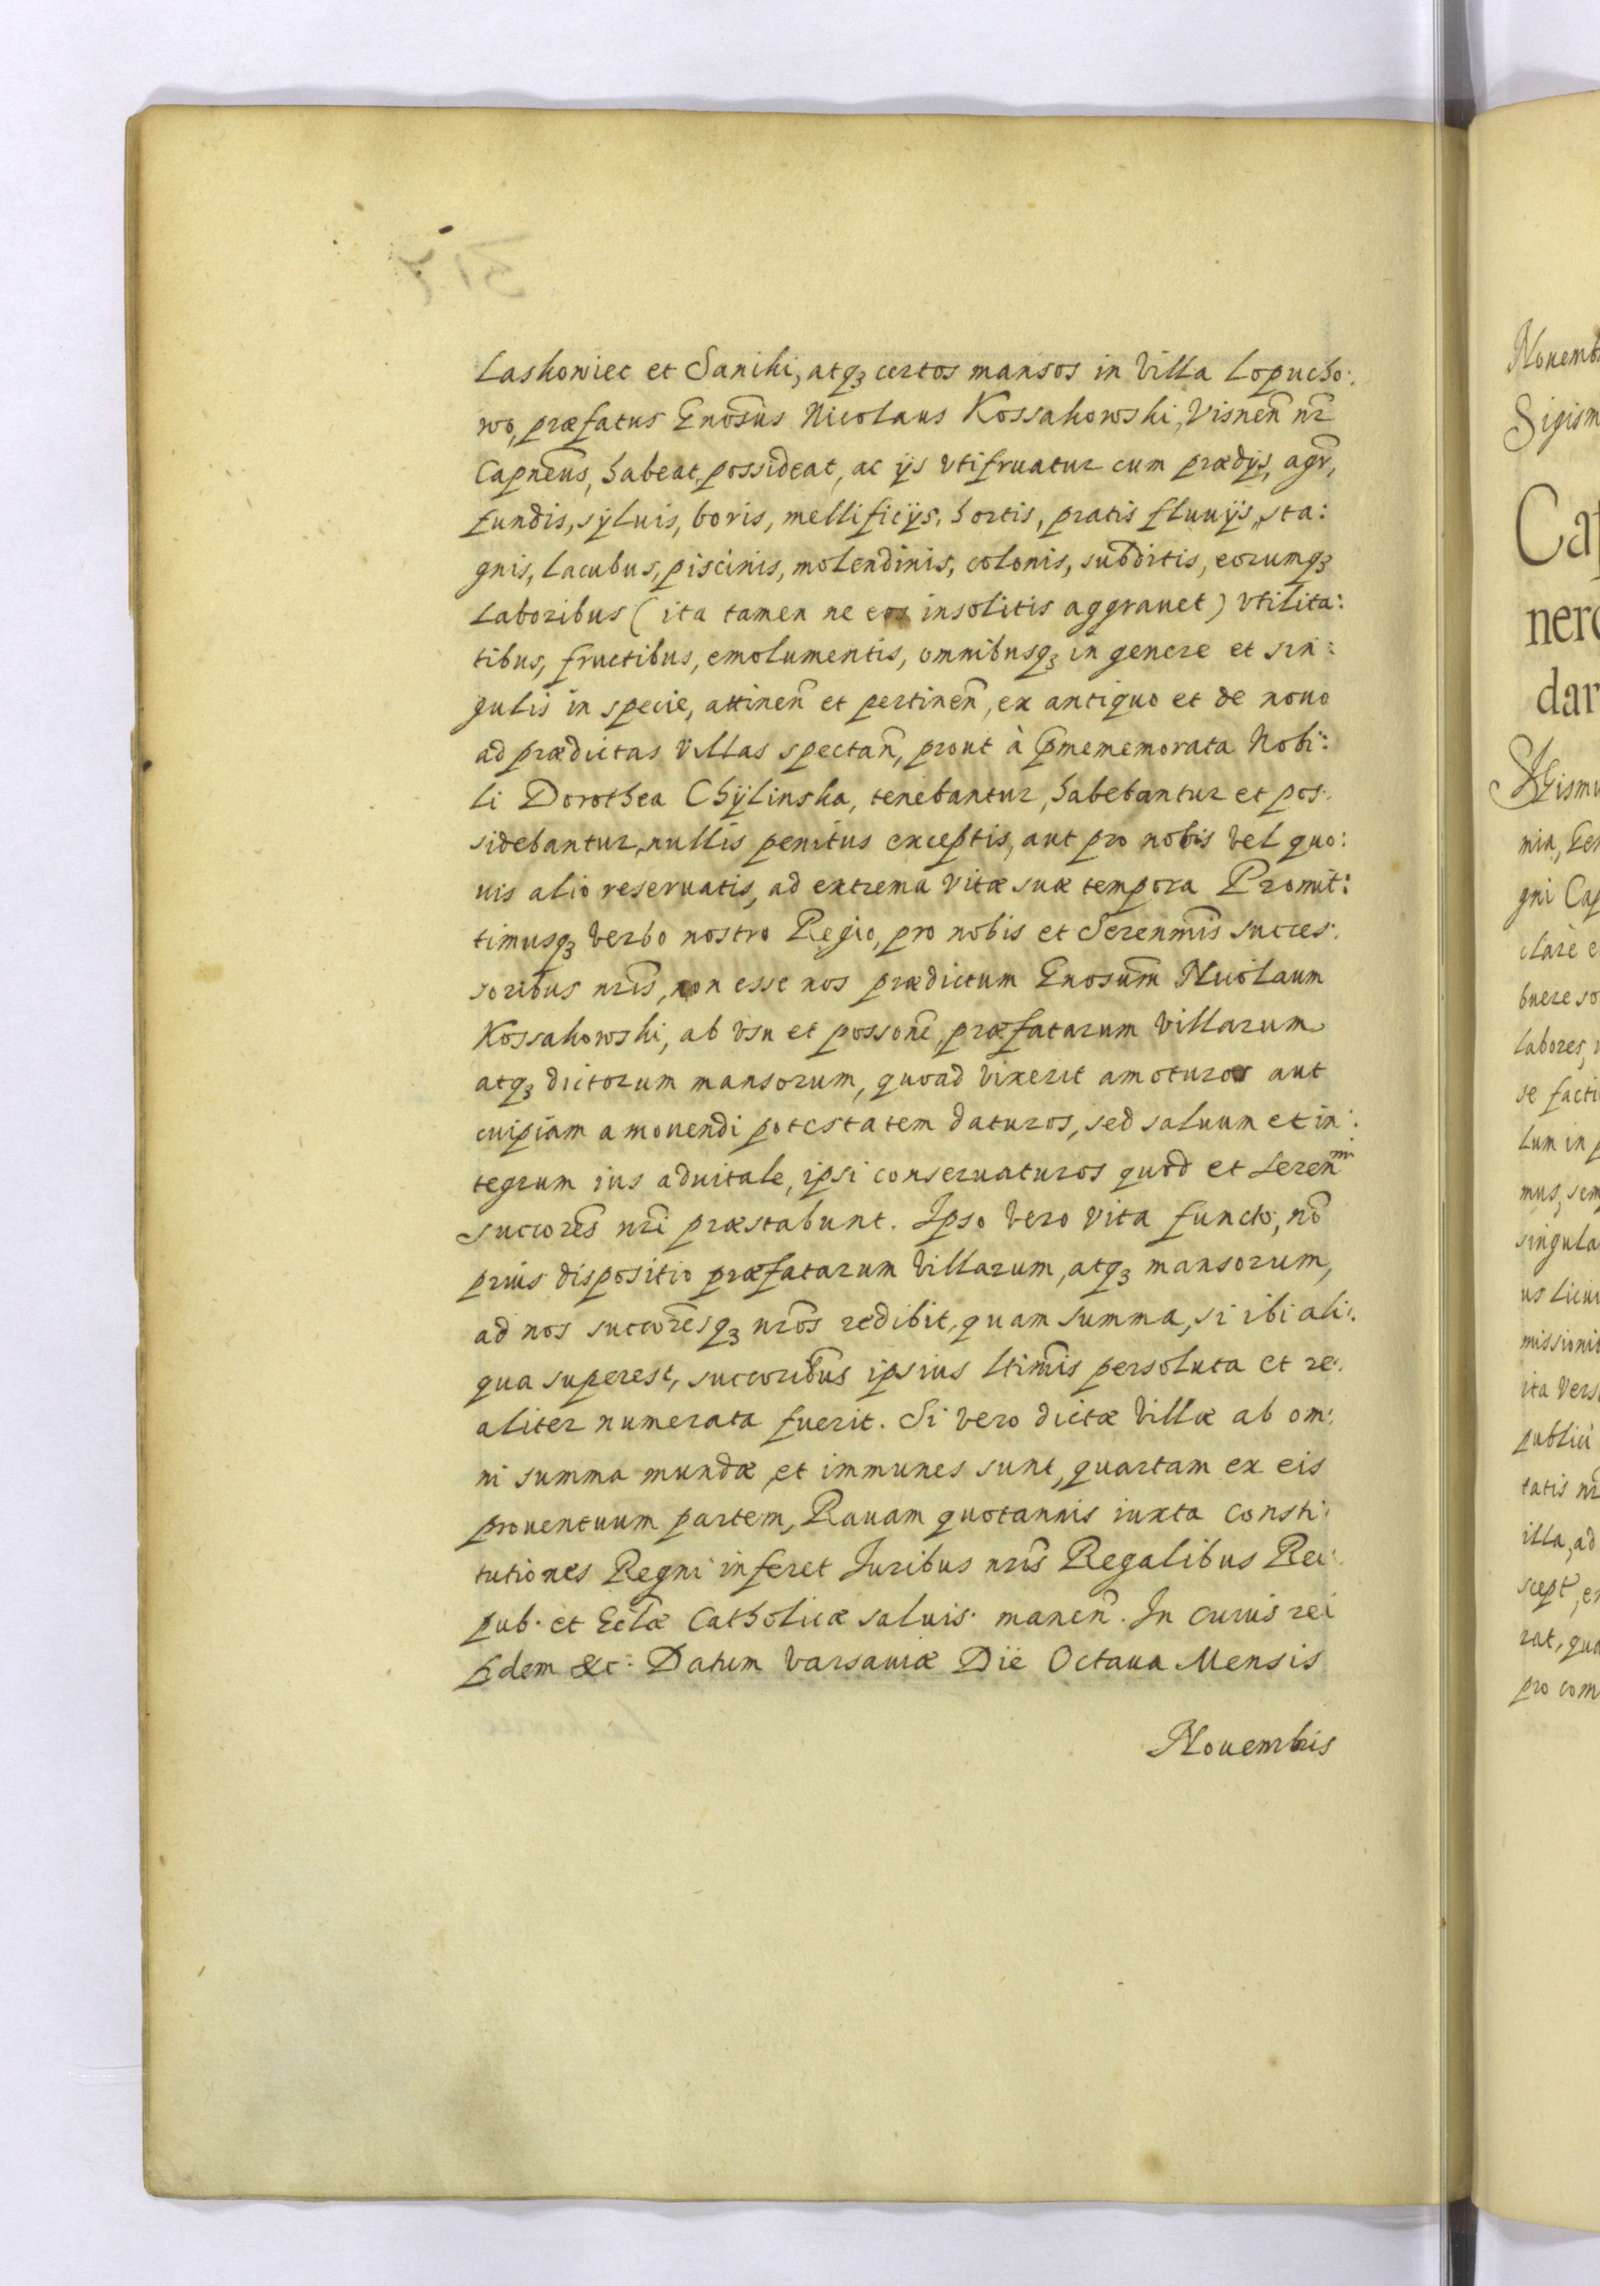 Laskowiec et Saniki, atqꝫ certos mansos in Villa Lopucho:
wo, præfatus Gnōsus Nicolaus Kossakowski, Visneñ nr̃
Capneũs, habeat, possideat, ac ijs vtifruatur cum prædijs, agr̃,
fundis, syluis, boris, mellificijs, hortis, pratis fluuijs, sta:
gnis, lacubus, piscinis, molendinis, colonis, subditis, eorumqꝫ
laboribus (ita tamen ne eos insolitis aggrauet) vtilita:
tibus, fructibus, emolumentis, omnibusqꝫ in genere et sin:
gulis in specie, attineñ et pertineñ, ex antiquo et de nouo
ad prædictas Villas spectañ, prout à p̃mememorata Nobi:
li Dorothea Chÿlinska, tenebantur, habebantur et pos:
sidebantur, nullis penitus exceptis, aut pro nobis vel quo:
uis alio reseruatis, ad extrema vitæ suæ tempora Promit:
timusqꝫ verbo nostro Regio, pro nobis et Serenm̃is succes:
soribus nr̃is, non esse nos prædictum Gnosum̃ Nicolaum
Kossakowski, ab vsu et possonẽ, præfatarum villarum
atqꝫ dictorum mansorum, quoad vixerit amoturos aut
cuipiam amouendi potestatem daturos, sed saluum et in:
tegrum ius aduitale, ipsi conseruaturos quod et Serenᵐⁱ
succores̃ nr̃i præstabunt. Ipso vero vita functo, nõ
prius dispositio præfatarum villarum, atqꝫ mansorum,
ad nos succores̃qꝫ nr̃os redibit, quam summa, si ibi ali:
qua superest, succoribũs ipsius ltimis̃ persoluta et re:
aliter numerata fuerit. Si vero dictæ villæ ab om:
ni summa mundæ et immunes sunt, quartam ex eis
prouentuum partem, Rauam quotannis iuxta consti:
tutiones Regni inferet Iuribus nr̃is Regalibus Rei:
pub. et Ecl̃æ Catholicæ saluis. maneñ. In cuius rei
fidem &c: Datum Varsauiæ Die Octaua Mensis
Nouembris
Nouemb
Sigism
Ca
nero
dar
gni Cap
clarè e
buere so
labores,
se facti
lum in p
mus, sem
singula
missionib
ita vers
publici
tatis nr̃
illa, ad
scept, e
rat, qua
pro com